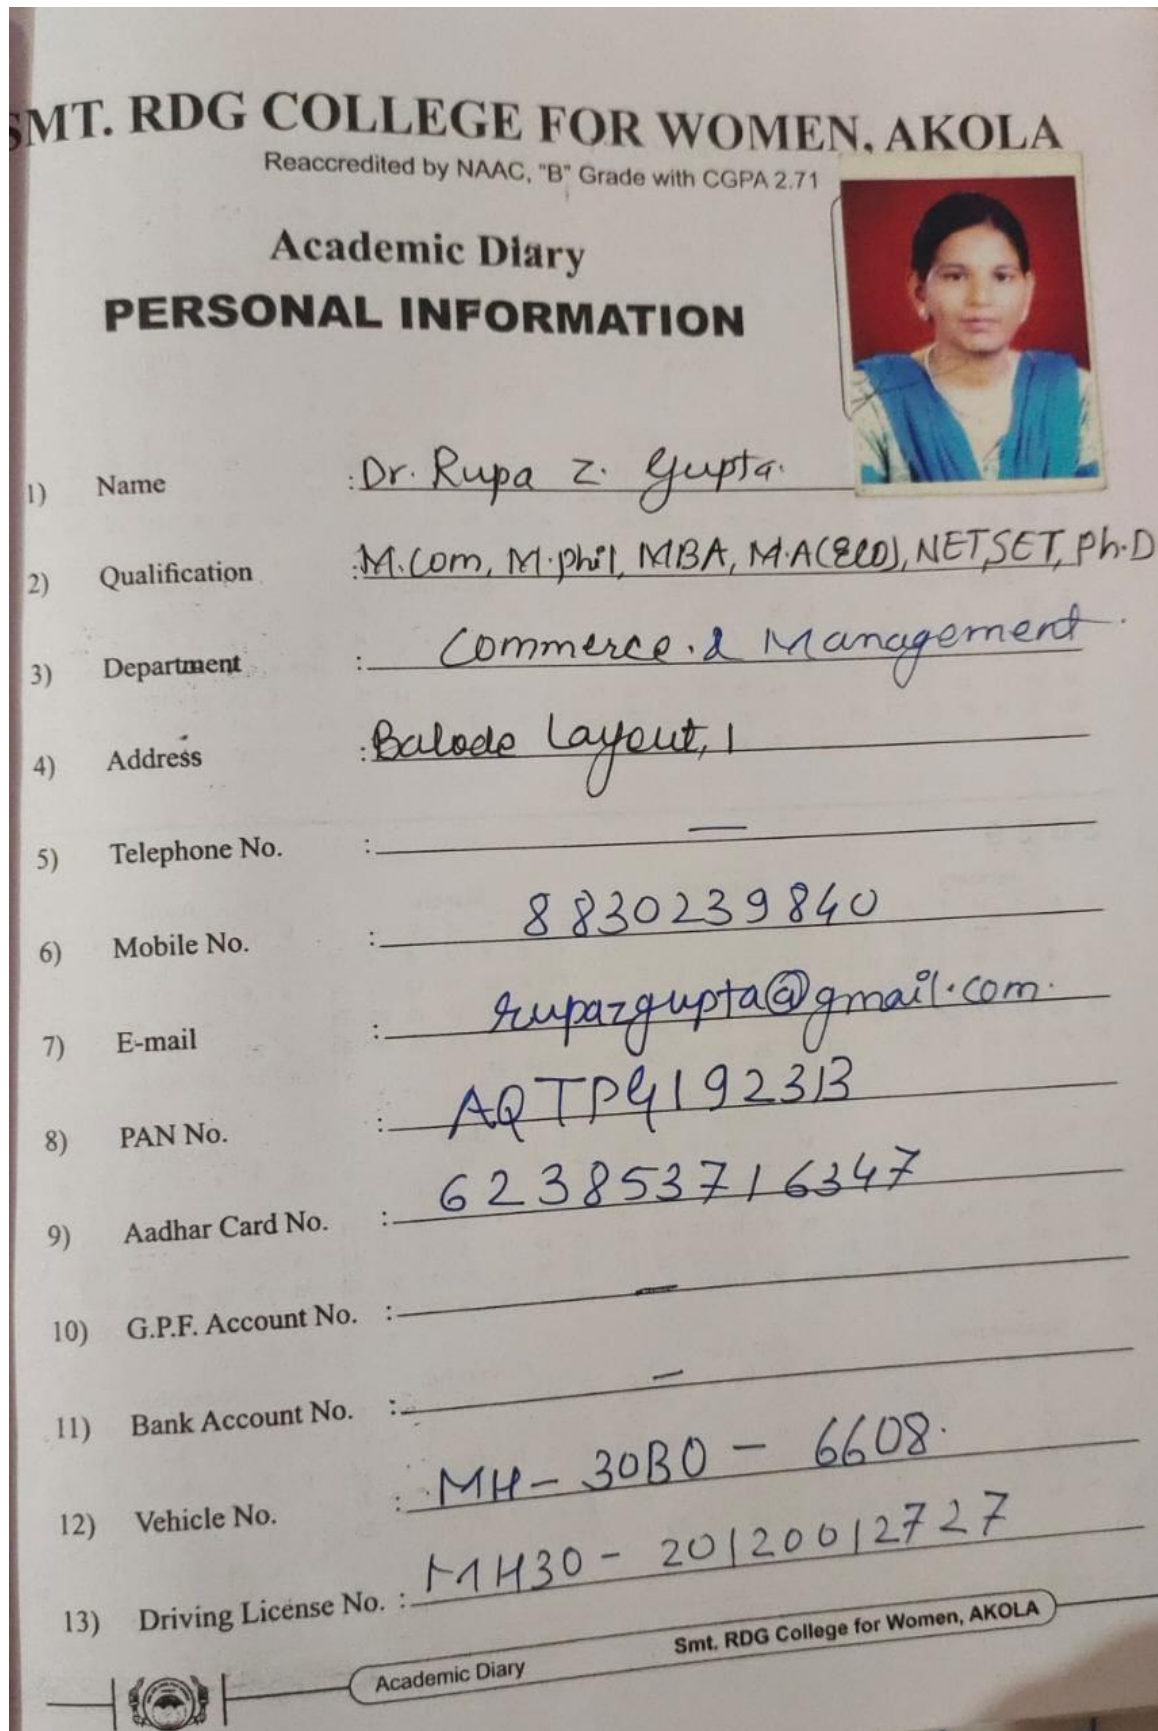 SMT. RDG COLLEGE FOR WOMEN, AKOLA
Reaccredited by NAAC, "B" Grade with CGPA 2.71
Academic Diary
PERSONAL INFORMATION
1) Name : Dr. Rupa Z. Gupta.
2) Qualification : M.Com, M.phil, MBA, M.A(ECO), NET,SET, Ph.D
3) Department : Commerce. & Management.
4) Address : Balode Layout, 1
5) Telephone No. : —
6) Mobile No. : 8830239840
7) E-mail : rupazgupta@gmail.com.
8) PAN No. : AQTPG1923B
9) Aadhar Card No. : 623853716347
10) G.P.F. Account No. : —
11) Bank Account No. : —
12) Vehicle No. : MH-30BO - 6608.
13) Driving License No. : MH30 - 20120012727
Academic Diary Smt. RDG College for Women, AKOLA